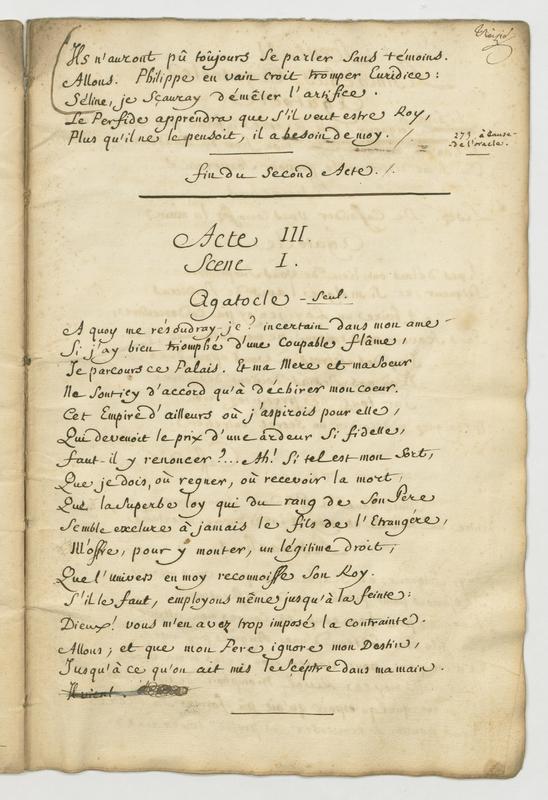 Ils n'auront pû toûjours se parler sans témoins.
Allons. Philippe en vain croit tromper Euridice:
Séline, je sçauray démêler l'artifice.
Le Perfide apprendra que s'il veut estre Roy,
Plus qu'il ne le pensoit, il a besoin de moy.
273. à cause
de l'oracle.
fin du Second Acte.
Acte III.
Scene I.
Agatocle - seul.
A quoy me résoudray-je? incertain dans mon ame
Si j'ay bien triomphé d'une Coupable flâme,
Je parcours ce Palais. Et ma Mere et ma Soeur
Ne sont icy d'accord qu'à déchirer mon coeur.
Cet Empire d'ailleurs où j'aspirois pour elle,
Qui devenoit le prix d'une ardeur si fidelle,
faut-il y renoncer?... Ah! si tel est mon Sort,
Que je dois, où regner, où recevoir la mort,
Que la superbe loy qui du rang de son Pere
Semble exclure à jamais le fils de l'Etrangére,
M'offre, pour y monter, un légitime droit,
Que l'univers en moy reconnoisse son Roy.
S'il le faut, employons même jusqu'à la feinte:
Dieux! vous m'en avez trop imposé la contrainte.
Allons; et que mon Pere ignore mon Destin,
Jusqu'à ce qu'on ait mis le Scéptre dans ma main.
Il vient.